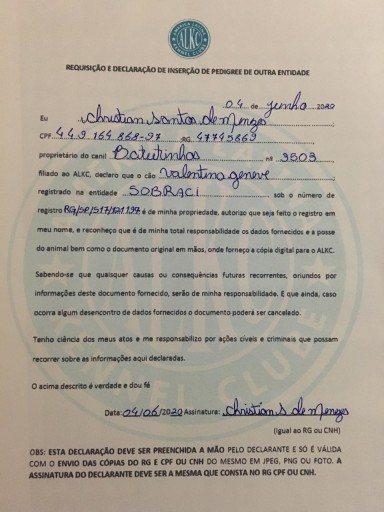 ALKC
KENNEL CLUBE
REQUISIÇÃO E DECLARAÇÃO DE INSERÇÃO DE PEDIGREE DE OUTRA ENTIDADE
04 de junho 2020
Eu Christian Santos de Menezes
CPF 449 164 868-97 RG 47745669
proprietário do canil Batutinhas nº 3503
filiado ao ALKC, declaro que o cão Valentina geneve
registrado na entidade SOBRACI sob o número de
registro RG/SP/517/121.197 é de minha propriedade, autorizo que seja feito o registro em
meu nome, e reconheço que é de minha total responsabilidade os dados fornecidos e a posse
do animal bem como o documento original em mãos, onde forneço a cópia digital para o ALKC.
Sabendo-se que quaisquer causas ou consequências futuras recorrentes, oriundos por
informações deste documento fornecido, serão de minha responsabilidade. E que ainda, caso
ocorra algum desencontro de dados fornecidos o documento poderá ser cancelado.
Tenho ciência dos meus atos e me responsabilizo por ações cíveis e criminais que possam
recorrer sobre as informações aqui declaradas.
O acima descrito é verdade e dou fé
Data: 04/06/2020 Assinatura: Christian S de Menezes
(igual ao RG ou CNH)
OBS: ESTA DECLARAÇÃO DEVE SER PREENCHIDA A MÃO PELO DECLARANTE E SÓ É VÁLIDA
COM O ENVIO DAS CÓPIAS DO RG E CPF OU CNH DO MESMO EM JPEG, PNG OU FOTO. A
ASSINATURA DO DECLARANTE DEVE SER A MESMA QUE CONSTA NO RG CPF OU CNH.